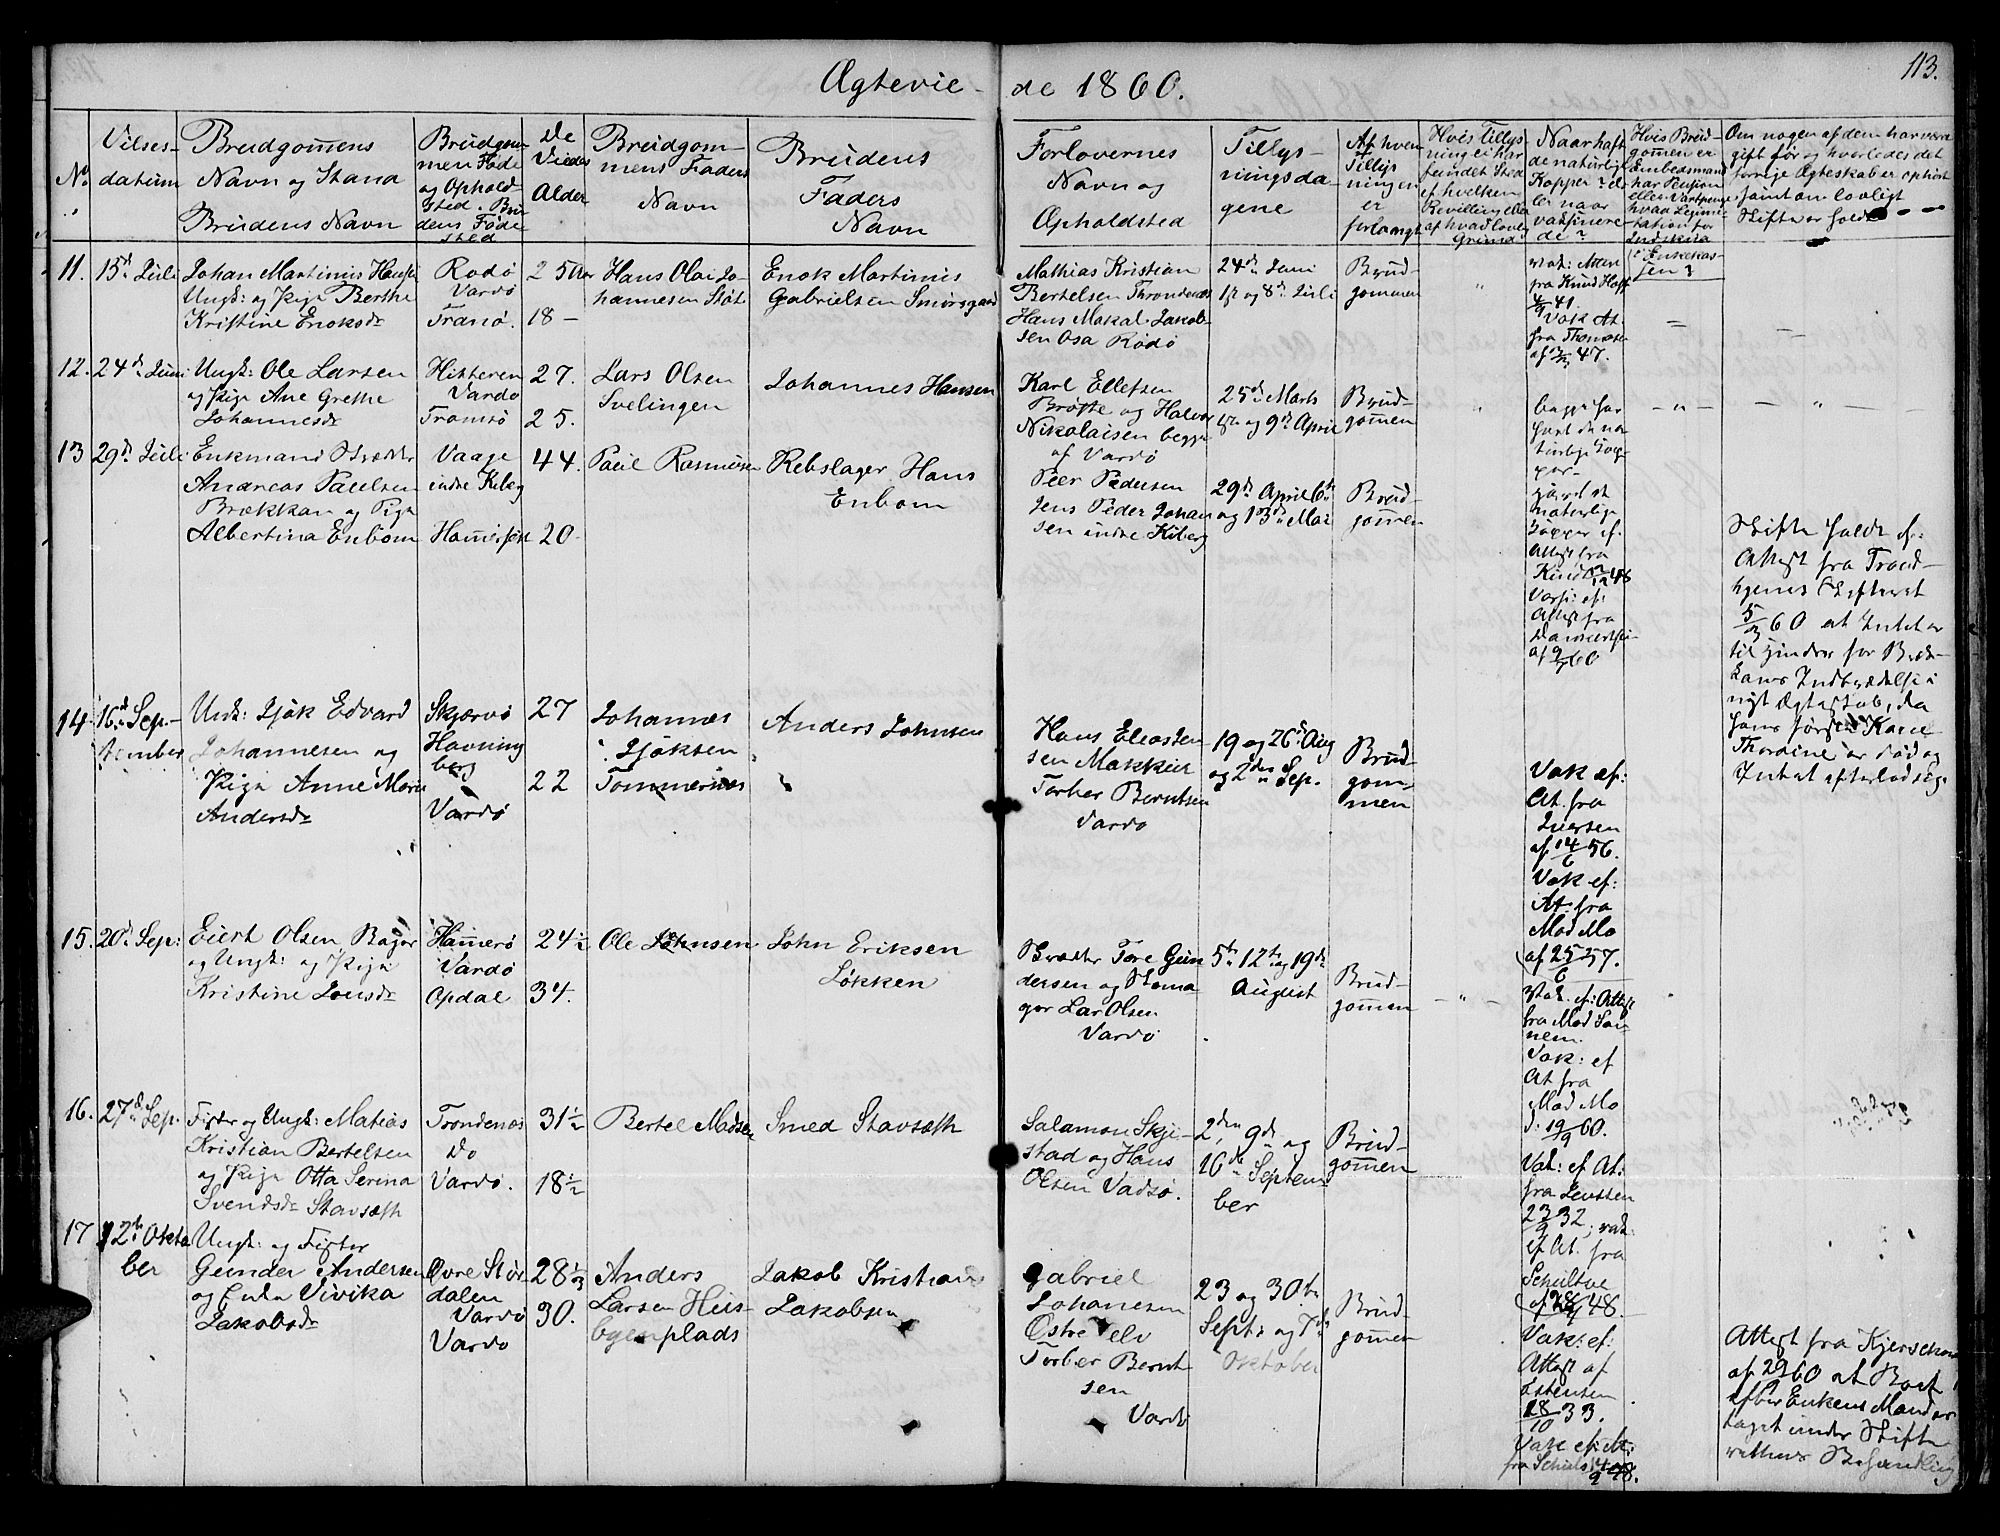 113.
Ægtevie-
de 1860.
No.
Vilses-
datum
Brudgommens
Navn og Stand
Brudens Navn
Brudgom-
men Føde
og Ophold-
sted. Bru
dens Føde
sted
De
Viedes
Alder
Brudgom-
mens Faders
Navn
Brudens
Faders
Navn
Forlovernes
Navn og
Opholdsted
Tillys-
ningsda-
gene
Af hvem
Tillys
ningen
er
forlangt
Hvis Tillys
ning ei har
fundet Sted
ef hvilken
Bevilling eller
af hvad lovlig
Grund
Naar haft
de naturlige
Kopper el-
ler naar
vaksinere
de?
Hvis Brud-
gommen er
Embedsmand
har Pension
eller Vartpenge
hvad Legimi-
tation for
Indskud
i Enkekas-
sen?
Om nogen af dem har være
gift før og hvorledes det
forrige Ægteskab er ophørt
samt om lovligt
Skifte er holdt
11.
15d Juli
Johan Martinus Hansen
Ungk: og Pige Berthe
Kristine Enoksdr
Rødø
Vardø
Tranø.
25 Aar
18 -
Hans Olai Jo-
hannesen Støt
Enok Martinus
Gabrielsen
Mathias Kristian
Bertelsen Throndenæs
Hans Makal Jakob-
sen Osa Rødø
24d Juni
1st og 8d Juli
Brud-
gommen
vak: Attest
fra Knud Hoff
4/9 41.
Vak At.
fra Thomesen
47.
12.
24d Juni
Ungk: Ole Larsen
og Pige Ane Grethe
Johannesdr
Hitteren
Vardø
Tromsø
27.
25.
Lars Olsen
Svelingen
Johannes Hansen
Karl Ellefsen
Brøske og Halvor
Nikolaisen begge
af Vardø
25d Marts
1st og 9d April
Brud-
gommen
begge har
havt de na
turlige Kop-
per-
13
29d Juli
Enkmand
Andreas Paulsen
Brækkan og Pige
Albertina Enbom
Vaage
indre Kiberg
Hammerfest
44.
20-
Paul Rasmusen
Rebslager Hans
Enbom
Peer Pedersen
Jens Peder Johan
sen indre Kiberg
29d April 6te
og 13d Mai
Brud-
gommen
naturlige
Kopper ef.
Attest fra
48
ef:
Attest fra
60
Skifte holdt ef:
Attest fra Trond-
hjems Skifteret
5/3 60 at Intet er
til Hinder for Bræk-
kans Indtrædelse i
nyt Ægteskab, da
hans første Kone
Thordine er død og
Intet efterlod sig.
14.
16d Sep-
tember
Unk: Isak Edvard
Johannesen og
Pige Anne Marie
Andersdr
Skjærvø
Havning
berg
Vardø
27
22
Johannes
Isaksen
Tommernes
Anders Johnsen
Hans Eliassen
sen Makkier
Torber Berntsen
Vardø
19 og 26d Aug
og 2den Sep.
Brud-
gom-
men
Vak ef:
At. fra
Iversen
af 14/6 56.
Vak ef:
At. fra
Mad Mo
af 25/6 57.
15.
20d Sep:
Eiert Olsen Bager
og Ungk: og Pige
Kristine Jonsdr
Hamerø
Vardø
Opdal
24 1/2
34.
Ole Johnsen
John Eriksen
Løkken
Tore Gun
dersen og Skoma
ger Lar Olsen
Vardø
5te 12te og 19de
August
Brud-
gommen
Vak. ef: Attest
fra Mad Sor-
nem.
Vak: ef
At fra
Mad Mo
d: 19/9 60.
16.
27d Sep.
Fisker og Ungk: Matias
Kristian Bertelsen
og Pige Otta Serina
Svendsdr Stavsæth
Trondenæs
Do
Vardø.
31 1/2
18 1/2
Bertel Madsen
Smed Stavsæth
Salamon Skje-
stad og Hans
Olsen Vadsø.
2den, 9d og
16de Septem-
ber
Brud-
gommen
Vak: ef At:
fra Jentsen
23/9 32, vak:
ef At. fra
Schultve
48.
17
12te Okto
ber
Ungk: og Fisker
Gunder Andersen
og Enke Vivika
Jakobsdr
Øvre Stør
dalen
Vardø
Vardø
28 1/3
30.
Anders
Larsen Hus-
byenplads
Jakob Kristian
Jakobsen
Gabriel
Johanesen
Østre elv
Torber Bernt
sen
Vardø
23 og 30te
Sept: og 7d
Oktober
Brud-
gommen
Vak: ef:
Attest af
Estensen
18/10 33.
Vak ef: At:
fra Schults
48.
Attest fra Kjerschow
af 29/9 60 at Boet
efter Enkens Mand er
taget under Skifte
rettens Behandling